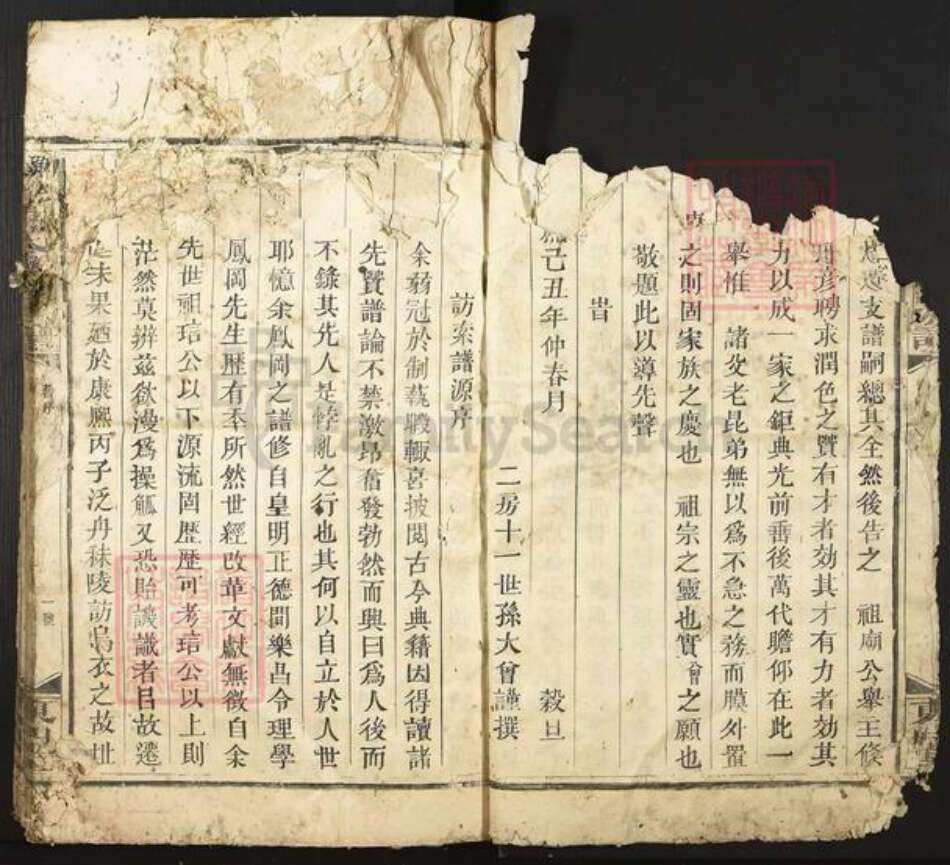 支譜嗣總其全然後告之 祖廟公舉王修
彥聘求潤色之賢有才者効其才有力者効其
力以成一家之鉅典光前垂後萬代瞻仰在此一
舉惟 諸父老昆弟無以爲不急之務而膜外置
之則固家族之慶也 祖宗之靈也實曾之願也
敬題此以導先聲
旹
己丑年仲春月 穀旦
二房十一世孫大曾謹撰
訪索譜源序
余弱冠於制蓺暇輙喜披閱古今典籍因得讀諸
先賢譜論不禁激昂奮發勃然而興曰爲人後而
不錄其先人是悖亂之行也其何以自立於人世
耶憶余鳳岡之譜修自皇明正德間樂昌令理學
鳳岡先生歷有年所然世經改革文獻無徵自余
先世祖琂公以下源流固歷歷可考琂公以上則
茫然莫辨茲欲漫爲操觚又恐貽譏識者目故遷
延未果廼於康熈丙子泛舟秣陵訪烏衣之故址
一號
FamilySearch